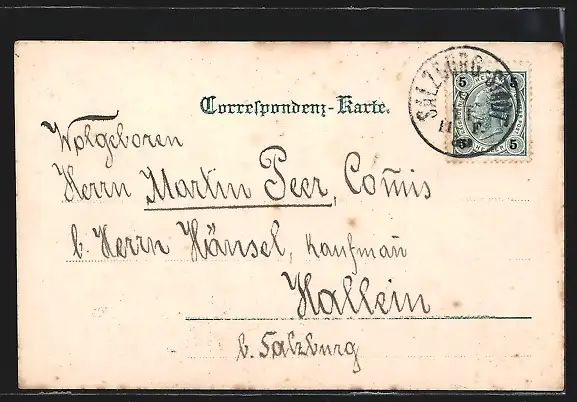 Correspondenz-Karte.
SALZBURG-STADT
5 5
5 5
Wolgeboren
Herrn Martin Peer, Com̄is
b. Herrn Hänsel, Kaufman̄
Hallein
b. Salzburg